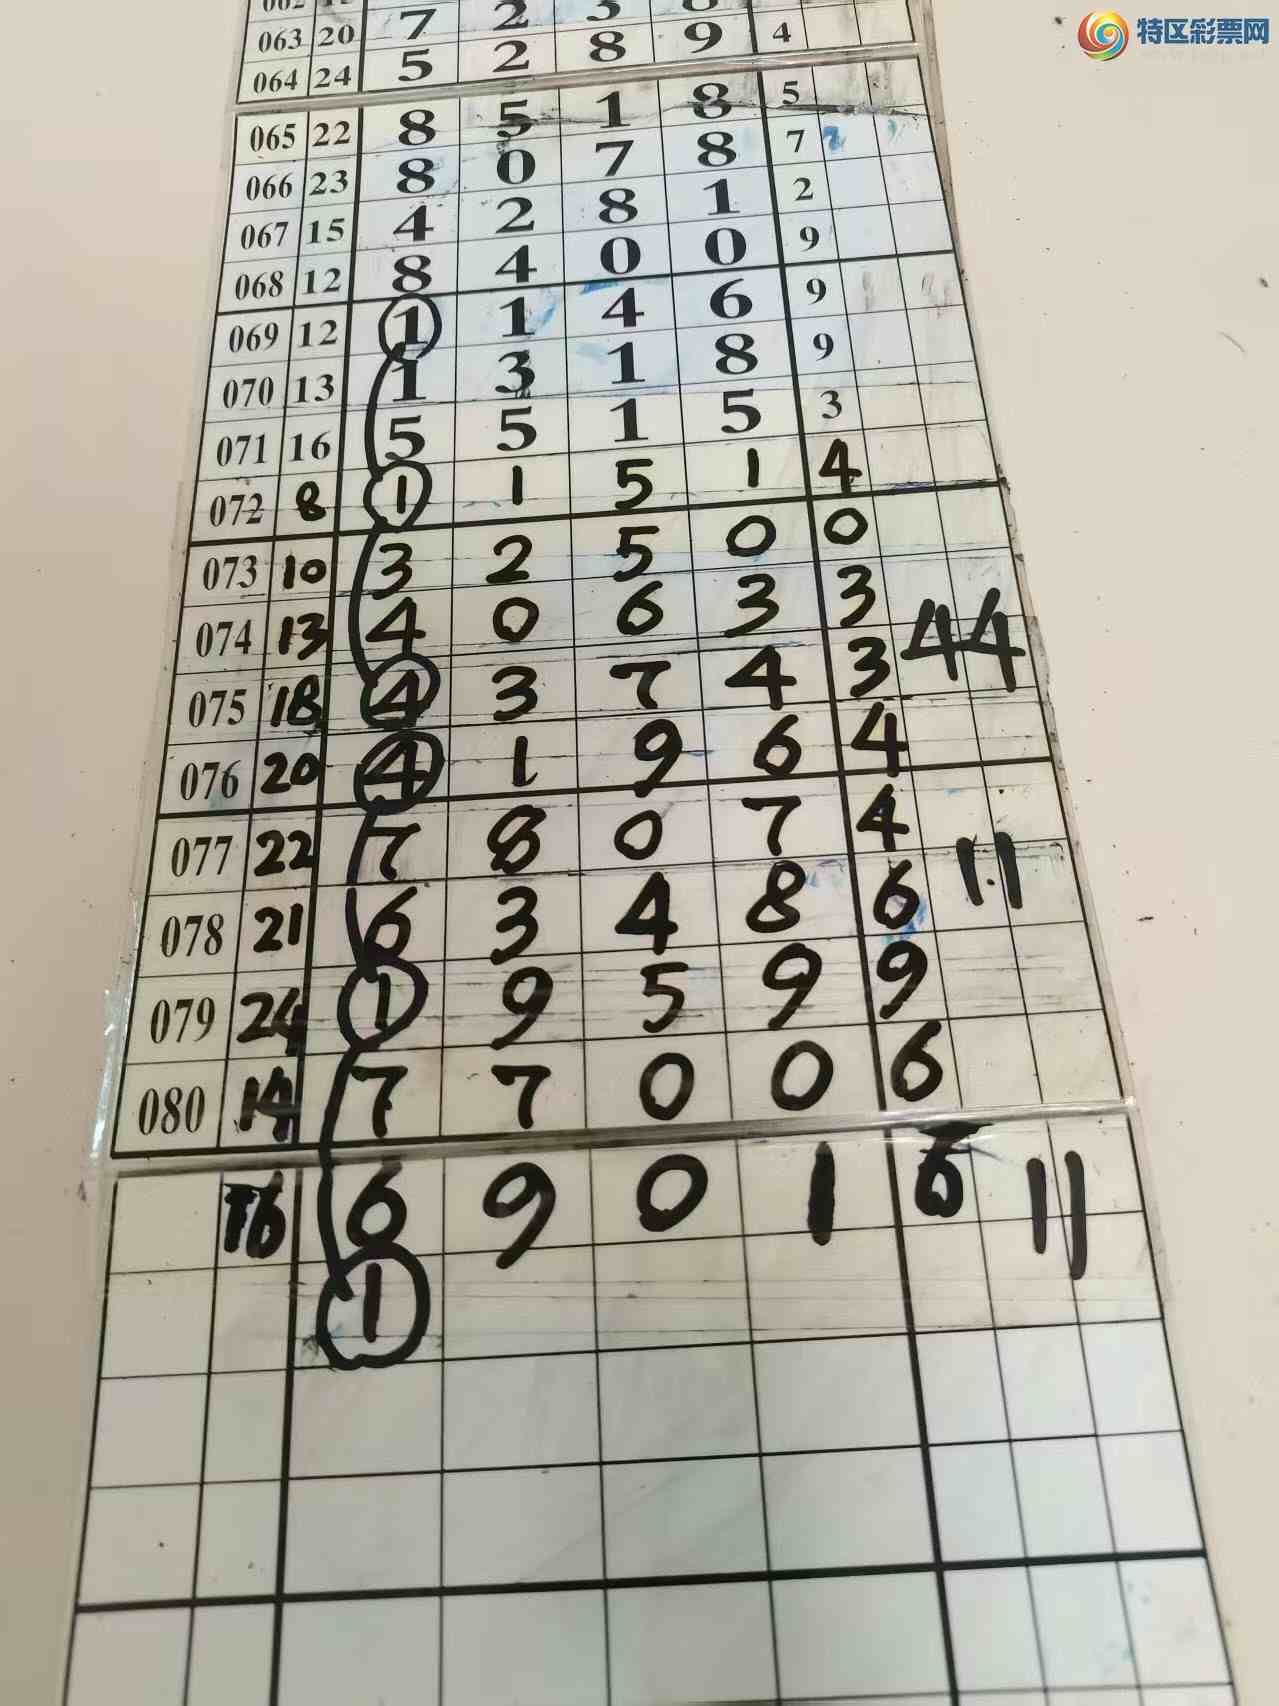 特区彩票网
063 20 7 2 3 4
064 24 5 2 8 9
065 22 8 5 1 8 5
066 23 8 0 7 8 7
067 15 4 2 8 1 2
068 12 8 4 0 0 9
069 12 1 1 4 6 9
070 13 1 3 1 8 9
071 16 5 5 1 5 3
072 8 1 1 5 1 4
073 10 3 2 5 0 0
074 13 4 0 6 3 3 44
075 18 4 3 7 4 3
076 20 4 1 9 6 4
077 22 7 8 0 7 4 11
078 21 6 3 4 8 6
079 24 1 9 5 9 9
080 14 7 7 0 0 6
16 6 9 0 1 6 11
1